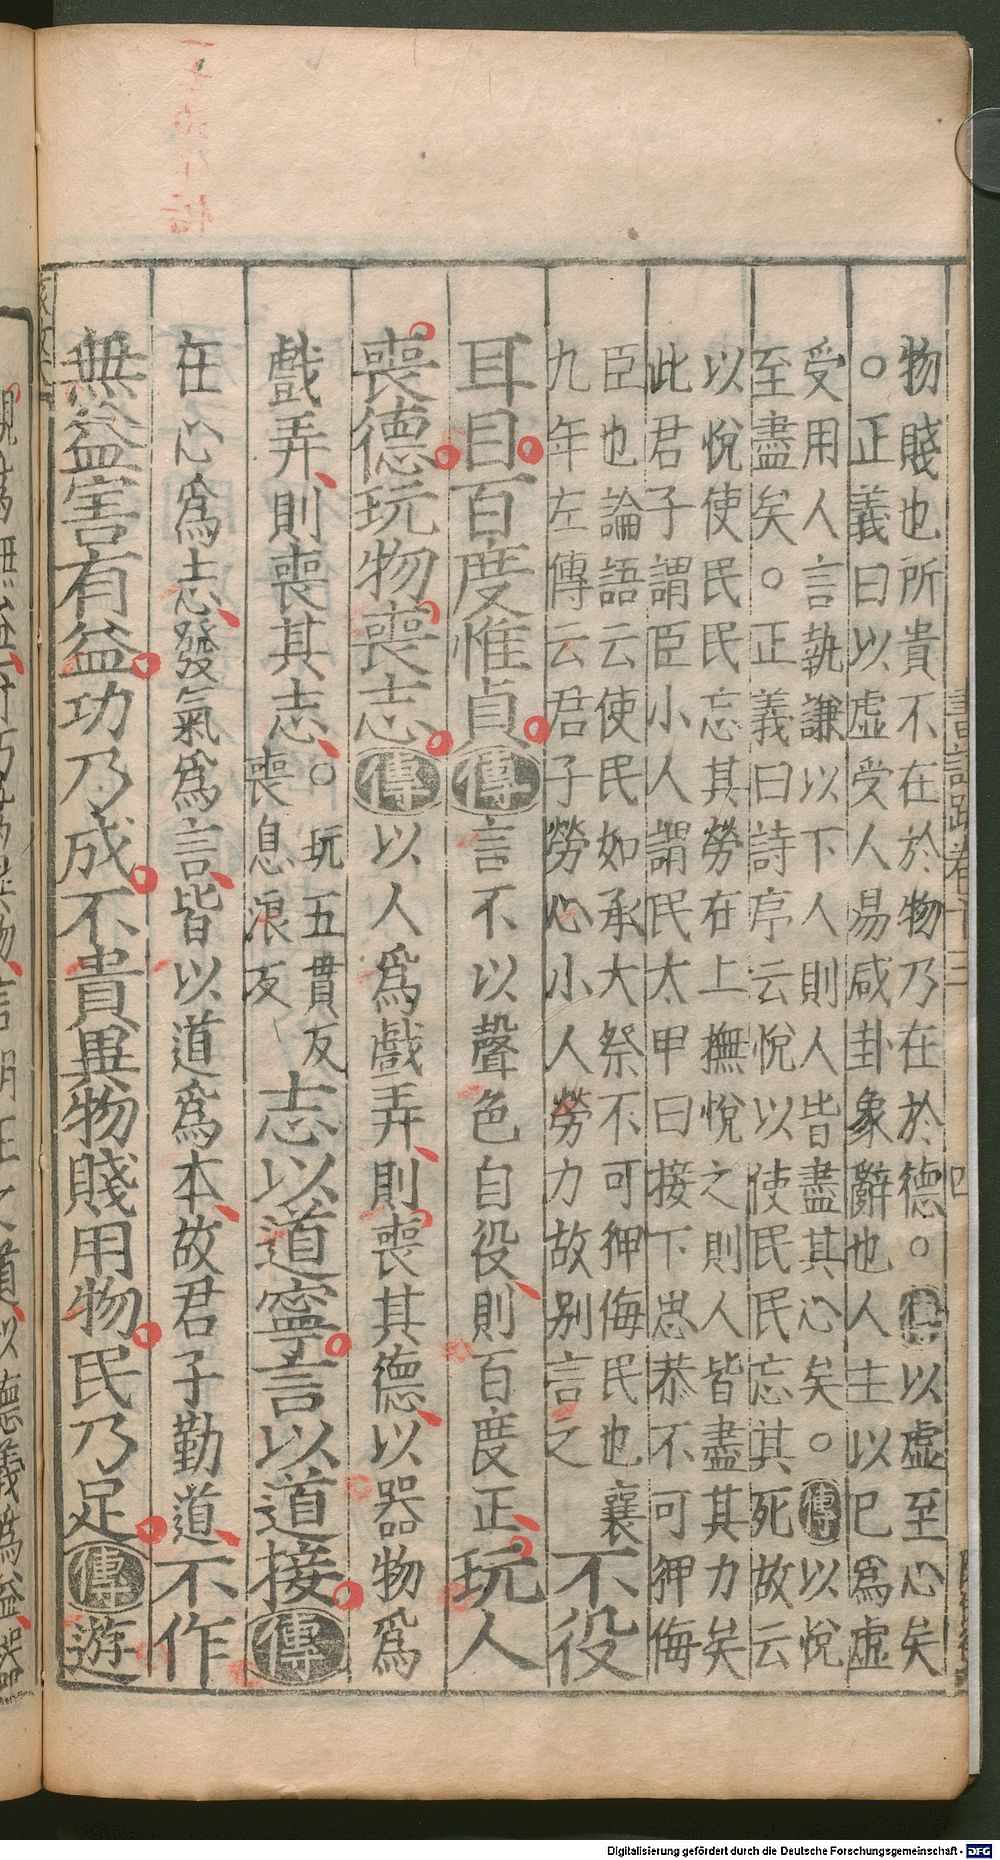 物賤也所貴不在於物乃在於德○傳以虛至心矣
○正義曰以虛受人易咸卦象辭也人主以已爲虛
受用人言執謙以下人則人皆盡其心矣○傳以悅
至盡矣○正義曰詩序云悅以使民民忘其死故云
以悅使民民忘其勞在上撫悅之則人皆盡其力矣
此君子謂臣小人謂民太甲曰接下思恭不可狎侮
臣也論語云使民如承大祭不可狎侮民也襄
九年左傳云君子勞心小人勞力故别言之
不役
耳目百度惟貞傳言不以聲色自役則百度正玩人
喪德玩物喪志傳以人爲戲弄則喪其德以器物爲
戲弄則喪其志○玩五貫反
喪息浪反
志以道寧言以道接傳
在心爲志發氣爲言皆以道爲本故君子勤道不作
無益害有益功乃成不貴異物賤用物民乃足傳遊
書註疏卷十三
四
Digitalisierung gefördert durch die Deutsche Forschungsgemeinschaft - DFG